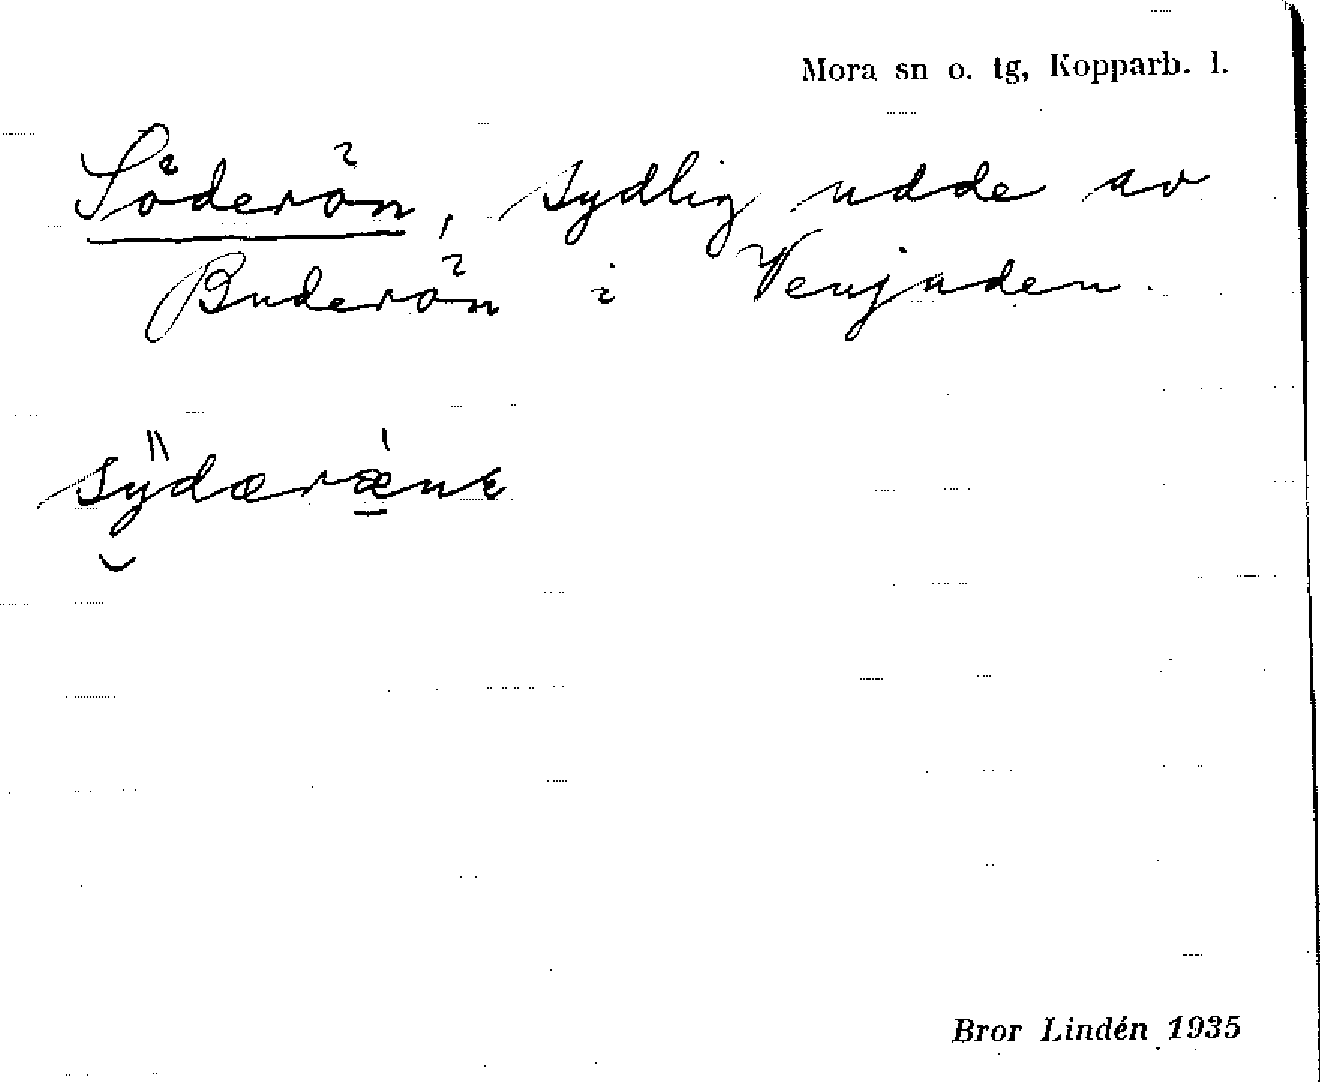 Mora sn o. tg, Kopparb. l.
Söderön, sydlig udde av
Buderön i Venjaden.
sydæræne
Bror Lindén 1935